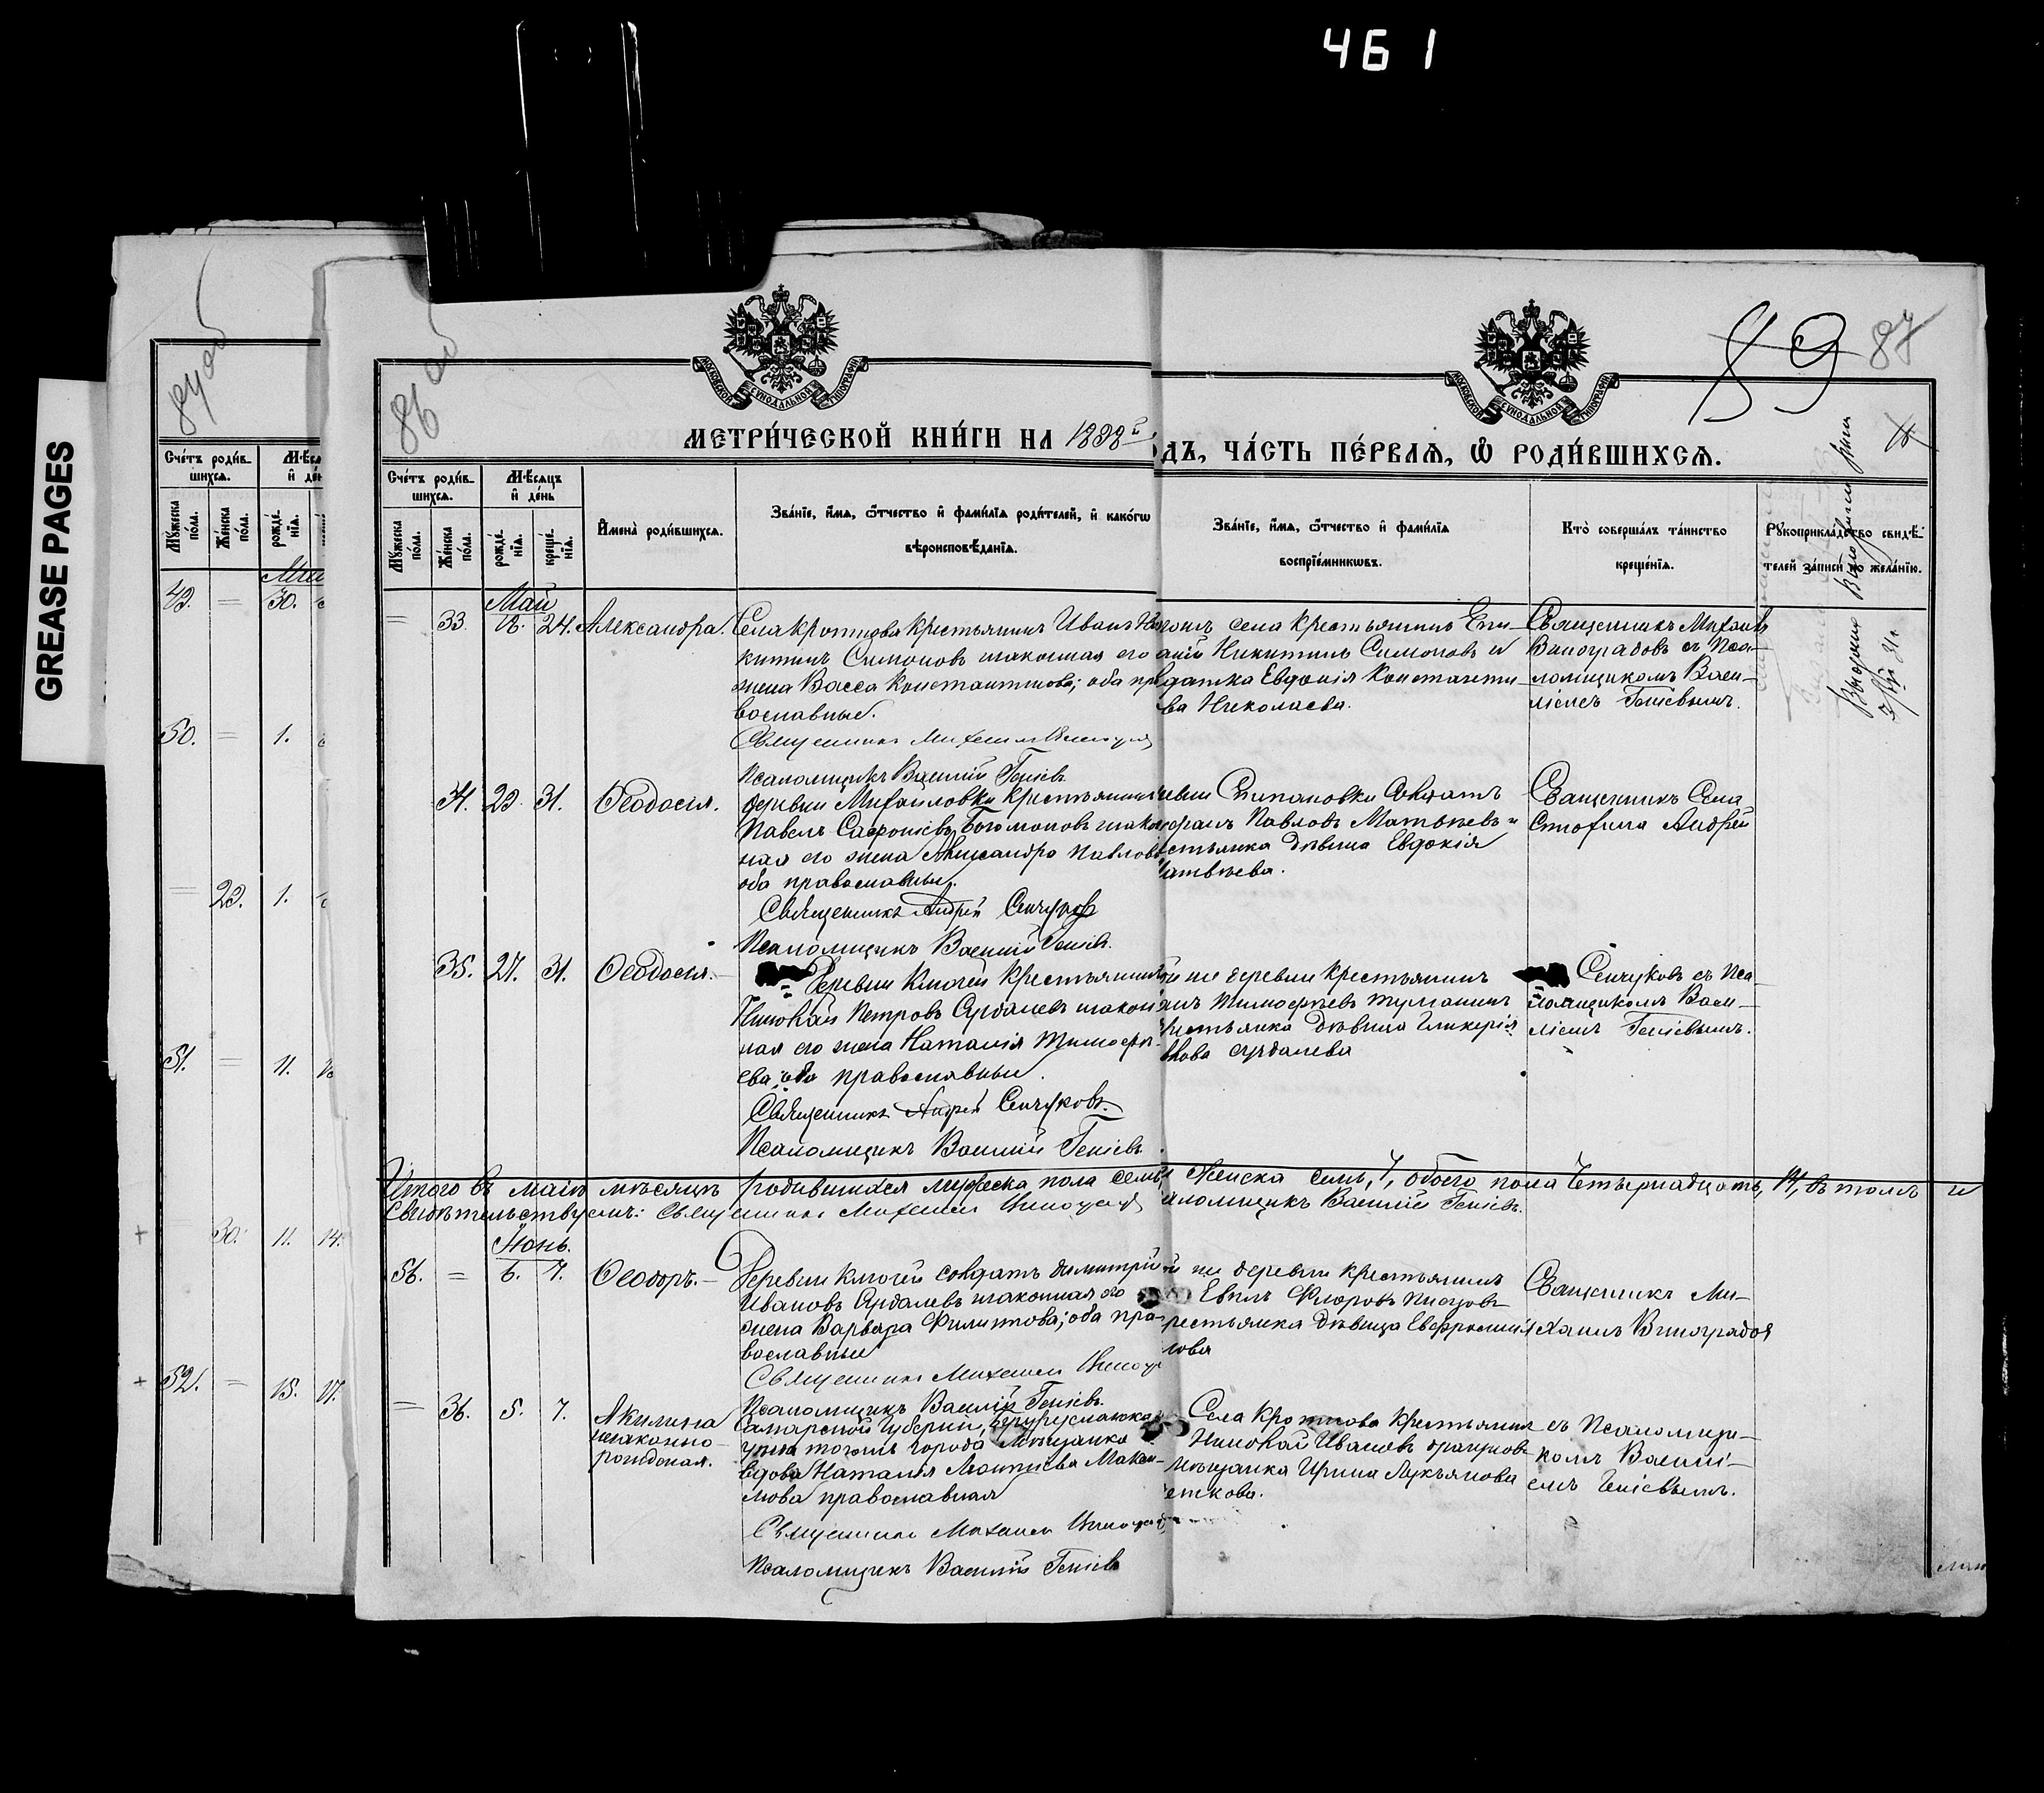 461
GREASE PAGES
84 об
86 об
89 87
МОСКОВСКОЙ СѴНОДАЛЬНОЙ ТИПОГРАФІИ
МОСКОВСКОЙ СѴНОДАЛЬНОЙ ТИПОГРАФІИ
МЕТРИ́ЧЕСКОЙ КНИ́ГИ НА 1888й
ОДЪ, ЧА́СТЬ ПЕ́РВАЯ, Ѡ РОДИ́ВШИХСЯ.
Сче́тъ роди́в-
шихся.
Мꙋ́жеска по́ла.
Же́нска по́ла.
рожде́-
нїя.
49. = 30.
50. = 1.
= 29. 1.
51. = 11.
30. 11. 14.
52. = 15. 17.
Сче́тъ роди́в-
шихся.
Мѣ́сяцъ
и҆ де́нь
Мꙋ́жеска по́ла.
Же́нска по́ла.
рожде́-
нїя.
креще́-
нїя.
И҆мена̀ роди́вшихся.
Зва́нїе, и҆́мя, ѻ҆́тчество и҆ фами́лїя роди́телей, и҆ како́гѡ
вѣроисповѣ́данїя.
Зва́нїе, и҆́мя, ѻ҆́тчество и҆ фами́лїя
воспрїе́мникѡвъ.
Кто̀ соверша́лъ та́инство
креще́нїя.
Рꙋкоприкла́дство свидѣ́-
телей за́писи по жела́нїю.
Май
= 33. 12. 24. Александра.
Села Кротково крестьянинъ Иванъ Ни
китинъ Симоновъ законная его
жена Васса Константинова; оба пра
вославные.
Священникъ Михаилъ Виноградовъ
Псаломщикъ Василій Генiевъ
тогожъ села крестьянинъ Епи-
аній Никитинъ Симоновъ и
датка Евдокія Константи-
ва Николаева.
Священникъ Михаилъ
Виноградовъ съ Пса-
ломщикомъ Васи-
ліемъ Геніевымъ.
34. 29. 31. Ѳеодосія.
деревни Михаиловки крестьянинъ
Павелъ Сафоніевъ Богомоловъ закон
ная его жена Александра Павлова
оба православные.
Священникъ Андрей Сенчуковъ
Псаломщикъ Василій Геніевъ.
евни Степановки солдатъ
Павловъ Матвѣевъ и
стьянка дѣвица Евдокія
атвѣева.
Священникъ Села
Андрей
35. 27. 31. Ѳеодосія.
Деревни Ключей Крестьянинъ
Николай Петровъ Сурдалевъ закон
ная его жена Наталія Тимофѣ-
ева, оба православные.
Священникъ Андрей Сенчуковъ.
Псаломщикъ Василій Геніевъ.
й же деревни крестьянинъ
Тимофѣевъ
крестьянка дѣвица Гликерія
Сурдалева
Сенчуковъ съ Пса-
ломщикомъ Васи-
ліемъ Геніевымъ.
Итого въ маіѣ мѣсяцѣ родившихся мужеска пола семь, женска семь, 7, обоего пола четырнадцать, 14, въ томъ и
Свидѣтельствуемъ: Священникъ Михаилъ Виноградовъ Псаломщикъ Василій Геніевъ.
Іюнь.
56. = 6. 7. Ѳеодоръ.
Деревни Ключей солдатъ Димитрій
Ивановъ Сурдалевъ законная его
жена Варвара Филиппова; оба пра-
вославные
Священникъ Михаилъ Виногр
Псаломщикъ Василій Геніевъ.
й же деревни крестьянинъ
Флоровъ
рестьянка дѣвица Евфросинія
лова
Священникъ Ми-
хаилъ Виноградов
= 36. 5. 7. Акилина
незаконно-
рожденая.
Самарской Губерніи, Бугурусланска
уѣзда тогожъ города Мѣщанка
вдова Наталія Леонтіева Макси-
мова православная
Священникъ Михаилъ Виноград
Псаломщикъ Василій Геніевъ
Села Кроткова Крестьянин
Николай Ивановъ
мѣщанка Ирина Лукьянова
еткова.
съ Псаломщи-
комъ Василі-
емъ Геніевымъ.